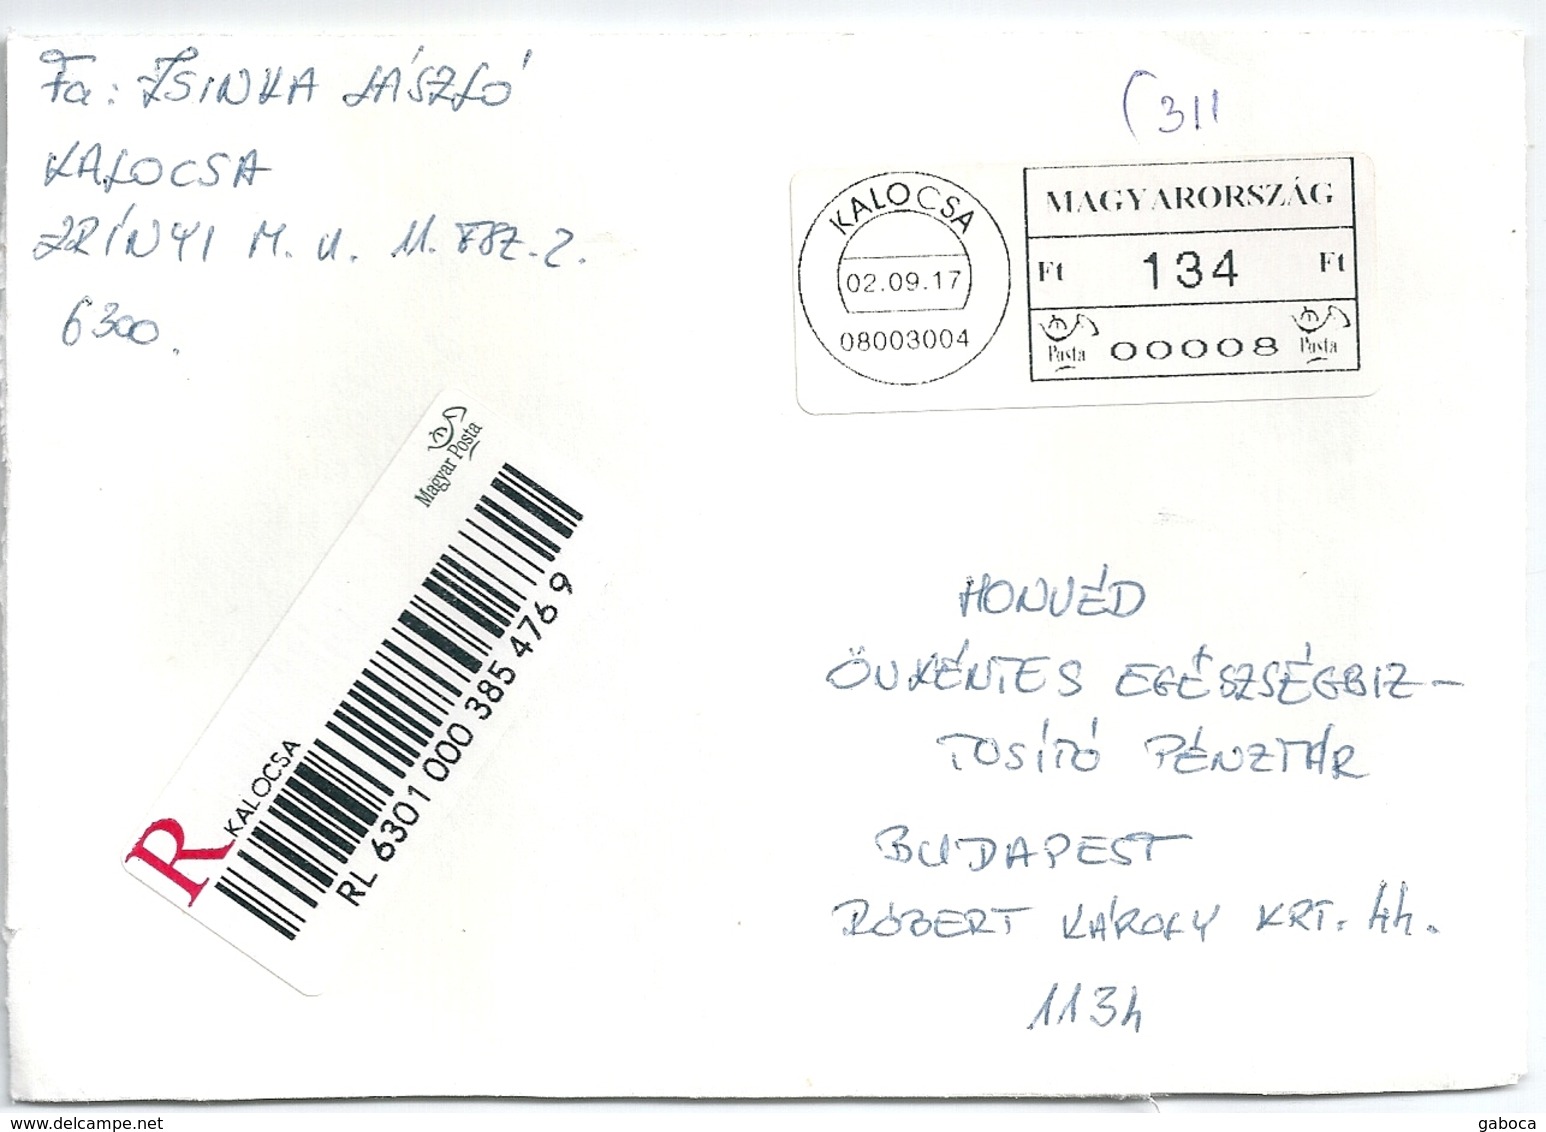 Fa: ZSINKA LÁSZLÓ
KALOCSA
ZRÍNYI M. u. 11. FSZ. 2.
6300.
311
KALOCSA
02.09.17
08003004
MAGYARORSZÁG
Ft 134 Ft
Posta 00008 Posta
Magyar Posta
R KALOCSA
RL 6301 000 385 476 9
HONVÉD
ÖNKÉNTES EGÉSZSÉGBIZ-
TOSÍTÓ PÉNZTÁR
BUDAPEST
RÓBERT KÁROLY KRT. 44.
1134
delcampe.net
gaboca